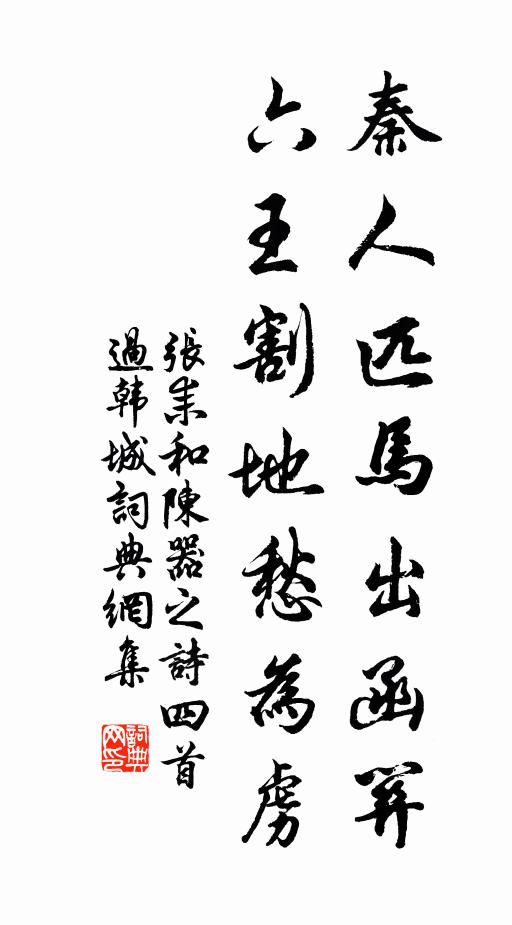 秦人匹馬出函関
六王割地愁為虜
張耒和陳器之詩四首
過韩城詞典網集
詞典网印